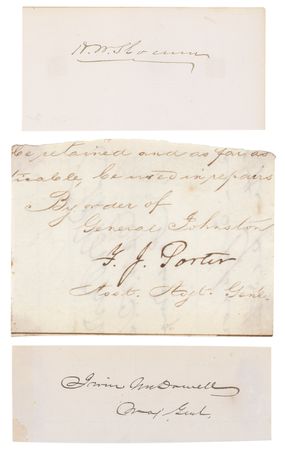 H.W. Slocum
be retained and as far as
ticable, be used in repairs
By order of
General Johnston
F. J. Porter
Asst. Adjt. Genl.
Irvin McDowell
Maj Genl.